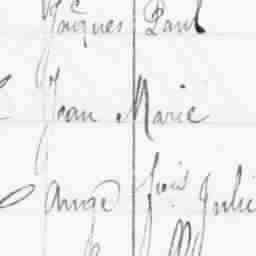 Jacques Paul
Jean Marie
Ange Fçois Julie